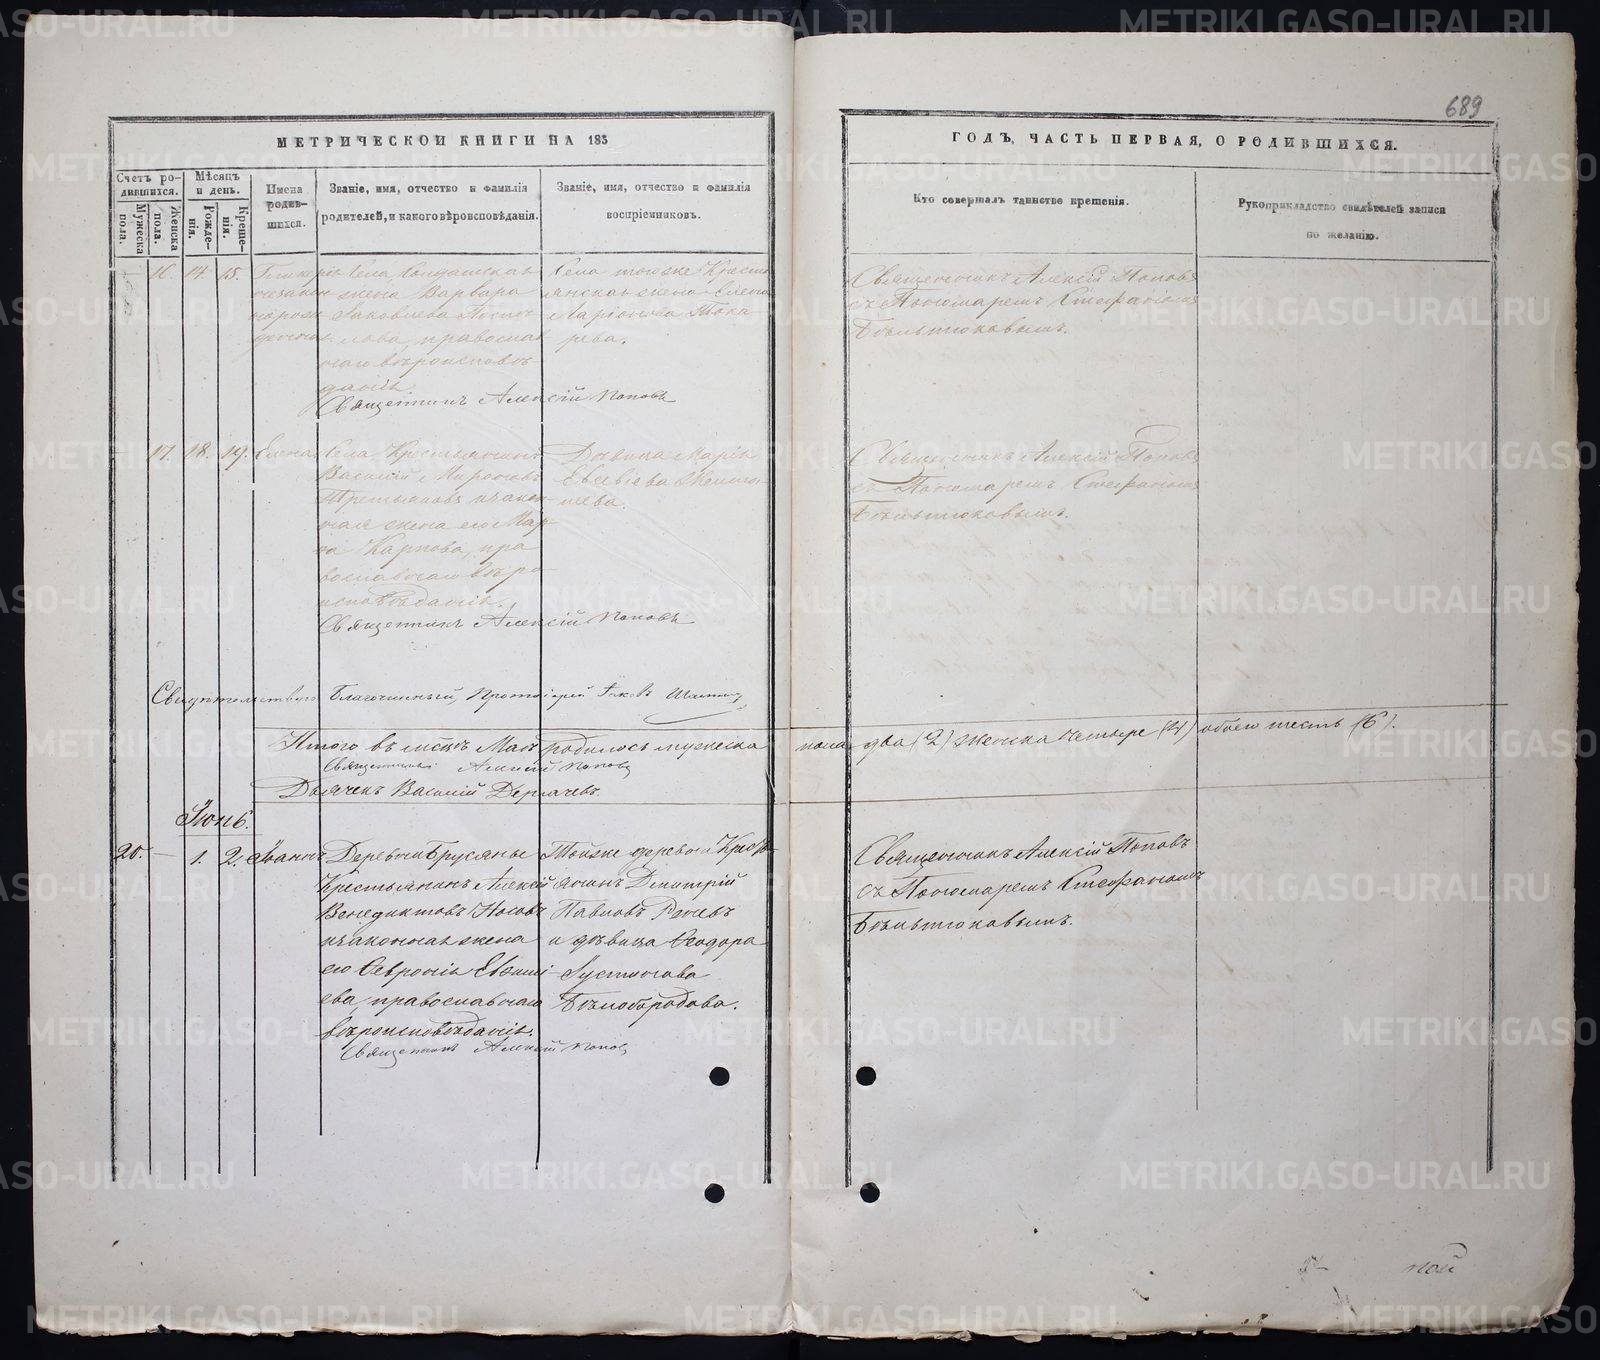 689
МЕТРИЧЕСКОЙ КНИГИ НА 185
ГОДЪ, ЧАСТЬ ПЕРВАЯ, О РОДИВШИХСЯ.
Счетъ ро-
дившихся.
Мужеска
пола.
Женска
пола.
Мѣсяцъ
и день.
Рожде-
нія.
Креще-
нія.
Имена
родив-
шихся.
Званіе, имя, отчество и фамилія
родителей, и какого вѣроисповѣданія.
Званіе, имя, отчество и фамилія
воспріемниковъ.
Кто совершалъ таинство крещенія.
Рукоприкладство свидѣтелей записи
по желанію.
16. 14. 15.
Села
жена Варвара
Яковлева
лова, православ
наго вѣроисповѣ
данія.
Священникъ Алексій Поповъ
Села тогоже Кресть
янская жена Елена
Ларіонова Тока
рева.
Священникъ Алексій Поповъ
съ Пономаремъ Стефаномъ
17. 18. 19. Елена
Села Крестьянинъ
Василій Мироновъ
Третьяковъ и закон
ная жена его Мар
ѳа Карпова, пра
вославнаго вѣро
исповѣданія.
Священникъ Алексій Поповъ
Дѣвица Марія
Евсевіева
Священникъ Алексій Поповъ
съ Пономаремъ Стефаномъ
Свидѣтельствовалъ Благочинный, Протоіерей Іаковъ
Итого въ мѣсяцѣ Маѣ родилось мужеска пола два (2) женска четыре (4) обоего шесть (6).
Священникъ Алексій Поповъ
Дьячекъ Василій Дергачевъ.
Іюнь.
20. — 1. 2. Іоаннъ
Деревни Брусяны
Крестьянинъ Алексій
Венедиктовъ Носовъ
и законная жена
его Февронія Евѳимі
ева, православнаго
вѣроисповѣданія.
Священникъ Алексій Поповъ
Тойже деревни Кресть
янинъ Димитрій
Павловъ
и дѣвица Ѳеодора
Іустинова
Бѣлобородова.
Священникъ Алексій Поповъ
съ Пономаремъ Стефаномъ
ной
METRIKI.GASO-URAL.RU